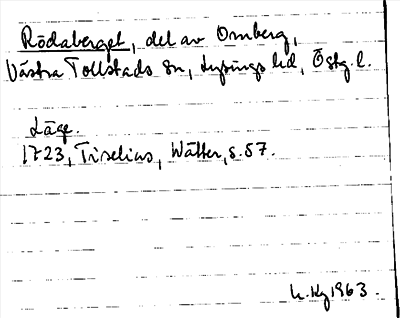 Rödaberget, del av Omberg,
Västra Tollstads sn, Lysings hd, Östg. l.
Läge.
1723, Tiselius, Wätter, s. 57.
1963.